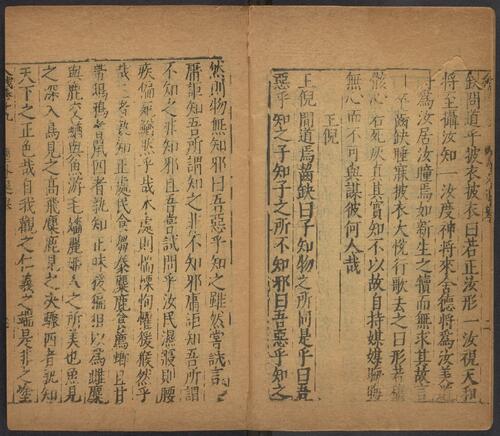 缺問道乎被衣被衣曰若正汝形一汝視天和
將至攝汝知一汝度神將來舍德將爲汝美道
將爲汝居汝瞳焉如新生之犢而無求其故言
未卒齧缺睡寐被衣大悅行歌去之曰形若槁
骸心若死灰眞其實知不以故自持媒媒晦晦
無心而不可與謀彼何人哉
王倪
王倪問道焉齧缺曰子知物之所同是乎曰吾
惡乎知之子知子之所不知邪曰吾惡乎知之
然則物無知邪曰吾惡乎知之雖然嘗試言之
庸詎知吾所謂知之非不知邪庸詎知吾所謂
不知之非知邪且吾嘗試問乎汝民濕寢則腰
疾偏死鰌然乎哉木處則惴慄恂懼猨猴然乎
哉三者孰知正處民食芻豢麋鹿食薦蝍且甘
帶鴟鴉耆鼠四者孰知正味猨猵狙以爲雌麋
與鹿交鰌與魚游毛嬙麗姬人之所美也魚見
之深入鳥見之高飛麋鹿見之決驟四者孰知
天下之正色哉自我觀之仁義之端是非之塗